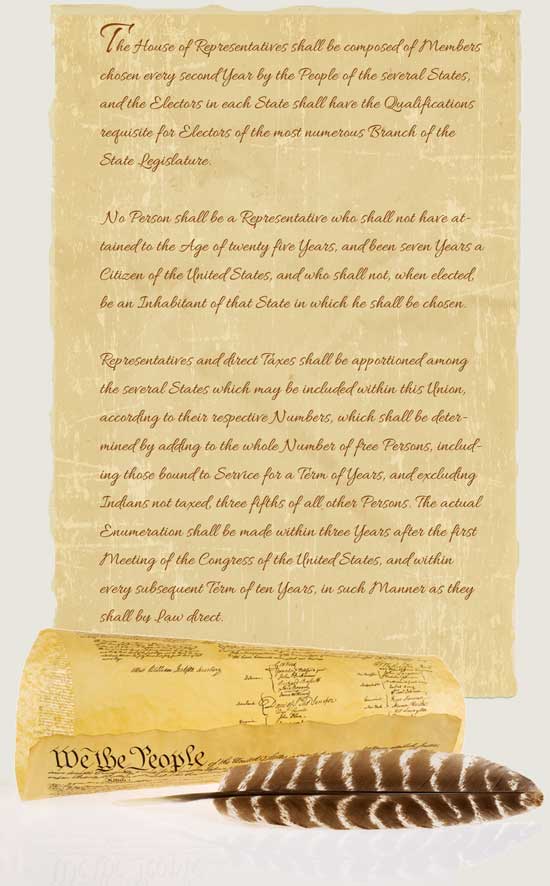 The House of Representatives shall be composed of Members
chosen every second Year by the People of the several States,
and the Electors in each State shall have the Qualifications
requisite for Electors of the most numerous Branch of the
State Legislature.
No Person shall be a Representative who shall not have at-
tained to the Age of twenty five Years, and been seven Years a
Citizen of the United States, and who shall not, when elected,
be an Inhabitant of that State in which he shall be chosen.
Representatives and direct Taxes shall be apportioned among
the several States which may be included within this Union,
according to their respective Numbers, which shall be deter-
mined by adding to the whole Number of free Persons, includ-
ing those bound to Service for a Term of Years, and excluding
Indians not taxed, three fifths of all other Persons. The actual
Enumeration shall be made within three Years after the first
Meeting of the Congress of the United States, and within
every subsequent Term of ten Years, in such Manner as they
shall by Law direct.
We the People of the United States